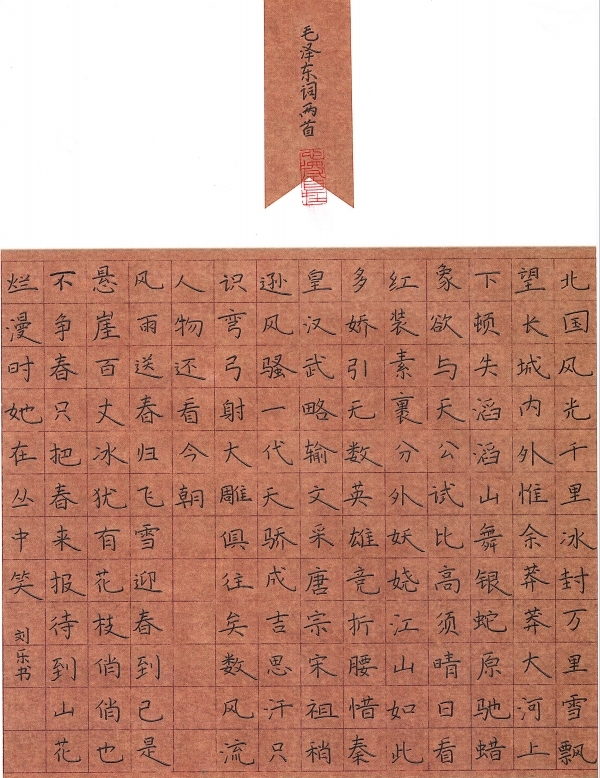 毛泽东词两首
北国风光千里冰封万里雪飘
望长城内外惟余莽莽大河上
下顿失滔滔山舞银蛇原驰蜡
象欲与天公试比高须晴日看
红装素裹分外妖娆江山如此
多娇引无数英雄竞折腰惜秦
皇汉武略输文采唐宗宋祖稍
逊风骚一代天骄成吉思汗只
识弯弓射大雕俱往矣数风流
人物还看今朝
风雨送春归飞雪迎春到已是
悬崖百丈冰犹有花枝俏俏也
不争春只把春来报待到山花
烂漫时她在丛中笑
刘乐书